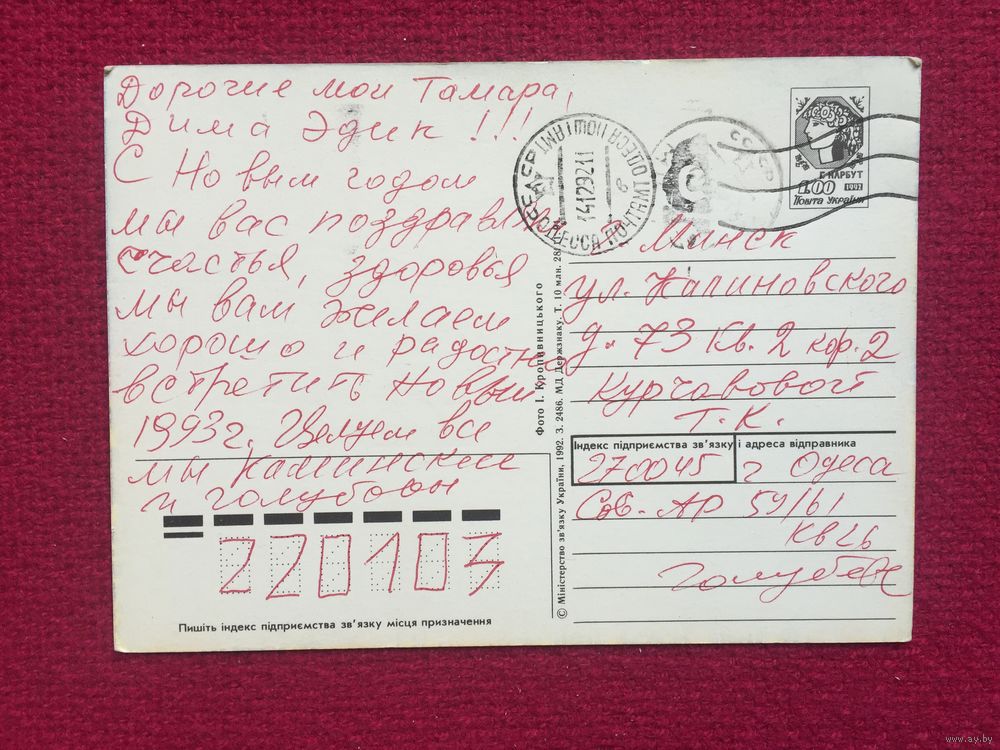 Дорогие мои Тамара,
Дима Эдик !!!
С Новым годом
мы вас поздравл
счастья, здоровья
мы вам желаем
хорошо и радостно
встретить Новый
1993 г. Целуем все
мы Каминские
и голубовы
220103
Пишіть індекс підприємства зв'язку місця призначення
Фото І. Кропивницького
© Міністерство зв'язку України, 1992. З. 2486. МД Держзнаку. Т. 10 млн. 28
СССР ОДЕССА ПОЧТАМТ
14129211
в
Г. НАРБУТ
1.00 1992
Пошта України
Минск
ул. Калиновского
д. 73 кв. 2 кор. 2
Курчавовой
Т. К.
Індекс підприємства зв'язку і адреса відправника
270045 г Одеса
Сов. АР 59/61
кв 26
www.ay.by